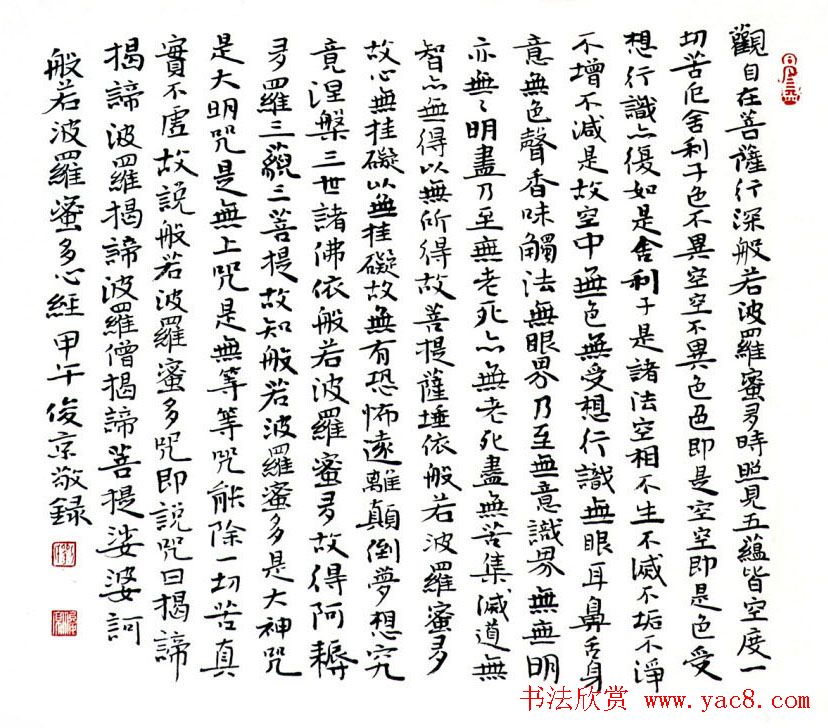 觀自在菩薩行深般若波羅蜜多時照見五蘊皆空度一
切苦厄舍利子色不異空空不異色色即是空空即是色受
想行識亦復如是舍利子是諸法空相不生不滅不垢不淨
不增不減是故空中無色無受想行識無眼耳鼻舌身
意無色聲香味觸法無眼界乃至無意識界無無明
亦無無明盡乃至無老死亦無老死盡無苦集滅道無
智亦無得以無所得故菩提薩埵依般若波羅蜜多
故心無挂礙以無挂礙故無有恐怖遠離顛倒夢想究
竟涅槃三世諸佛依般若波羅蜜多故得阿耨
多羅三藐三菩提故知般若波羅蜜多是大神咒
是大明咒是無上咒是無等等咒能除一切苦真
實不虛故說般若波羅蜜多咒即說咒曰揭諦
揭諦波羅揭諦波羅僧揭諦菩提娑婆訶
般若波羅蜜多心經甲午俊京敬録
书法欣赏 www.yac8.com